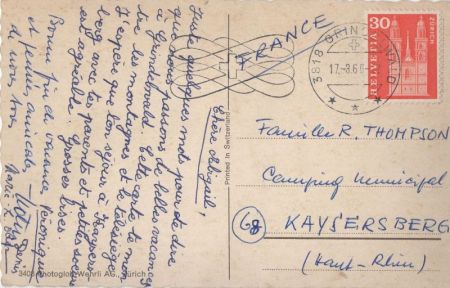 Chère Abigaïl,
Juste quelques mots pour te dire
que nous passons de belles vacances
à Grindelwald. Cette carte te mon-
tre les montagnes et le télésiège.
J'espère que ton séjour à Kaysers-
berg avec tes parents et petites soeurs
est agréable. Grosses bises.
Véronique
Bonne fin de vacances
et petites amicales
Printed in Switzerland
3403 Photoglob-Wehrli AG., Zürich
FRANCE
3818 GRINDELWALD
17.-8.6
30
HELVETIA
ZÜRICH
Famille R. THOMPSON
Camping Municipal
68 KAYSERSBERG
(Haut-Rhin)